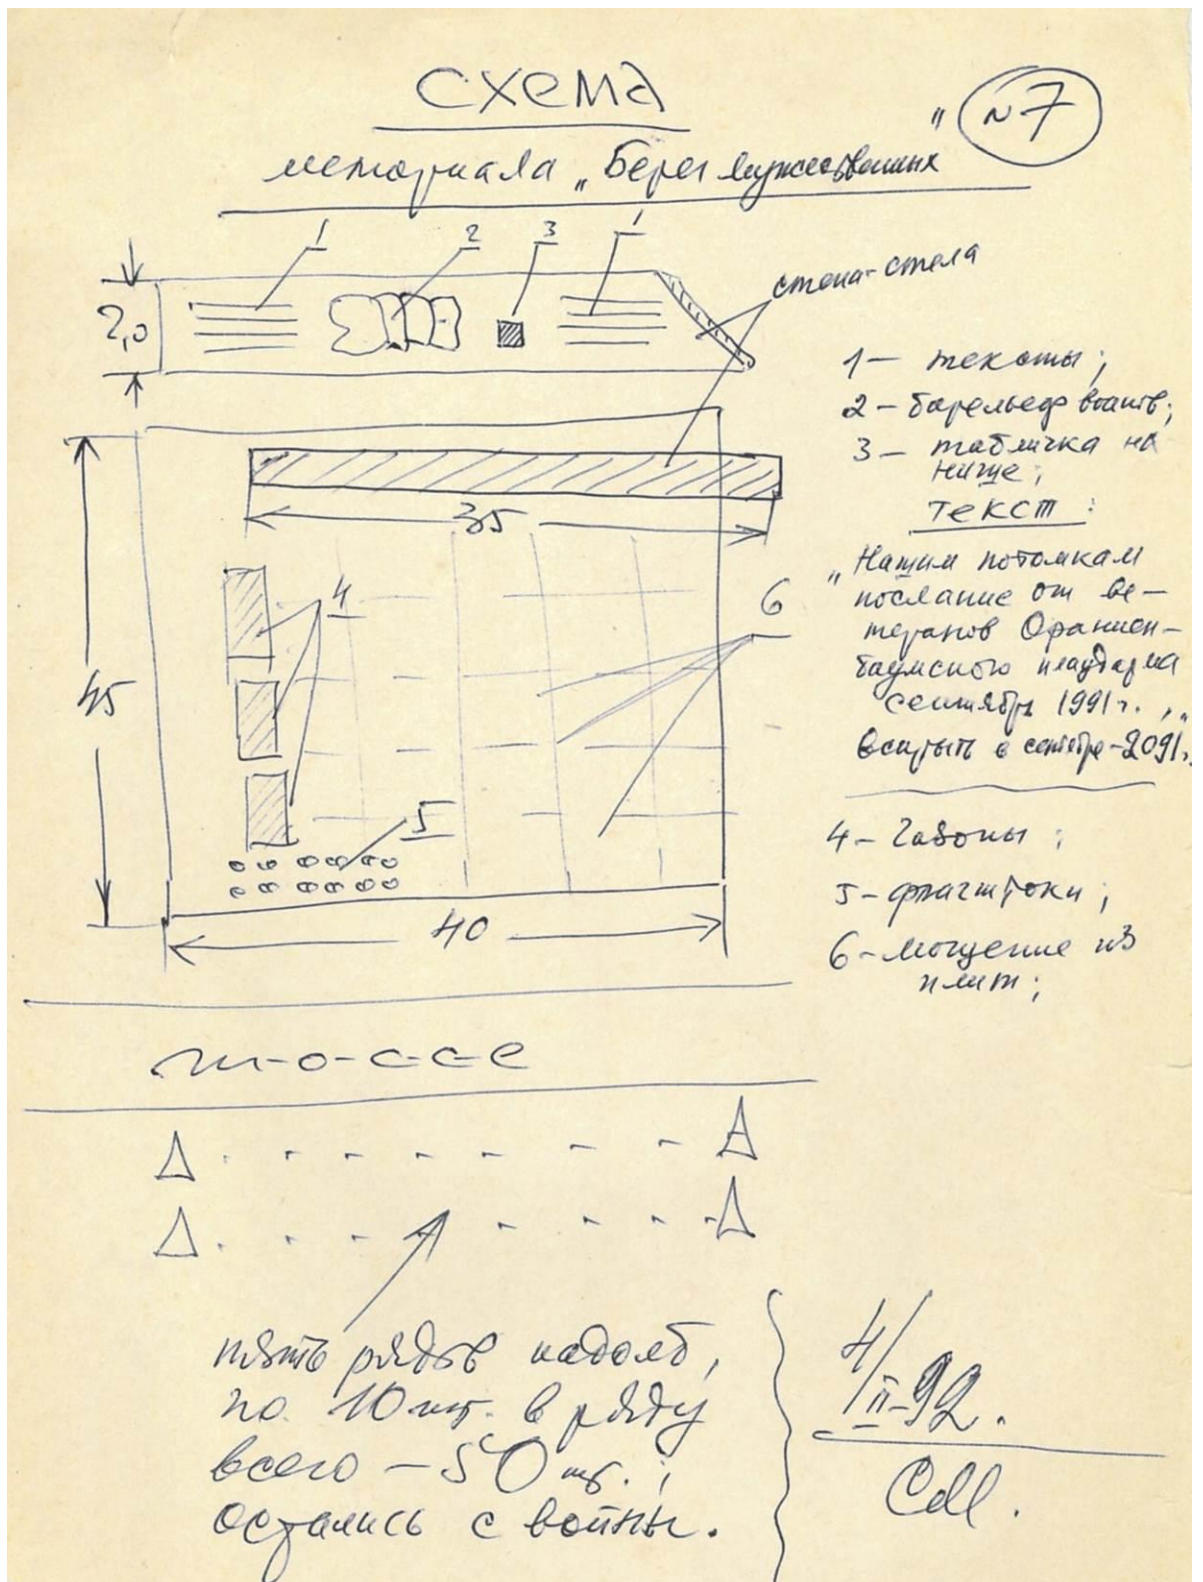 схема
№7
мемориала „Берег мужественных"
1
2
3
1
стена-стела
2,0
1 — тексты;
2 — барельеф воинов;
3 — табличка на
нише;
текст:
„Нашим потомкам
послание от ве-
теранов Ораниен-
баумского плацдарма
сентябрь 1991 г.„
вскрыть в сентябре - 2091 г.
35
4
6
45
5
40
4 - газоны;
5 - флагштоки;
6 - мощение из
плит;
ш-о-с-с-е
пять рядов надолб,
по 10 шт. в ряду
всего — 50 шт.;
остались с войны.
4/II-92.